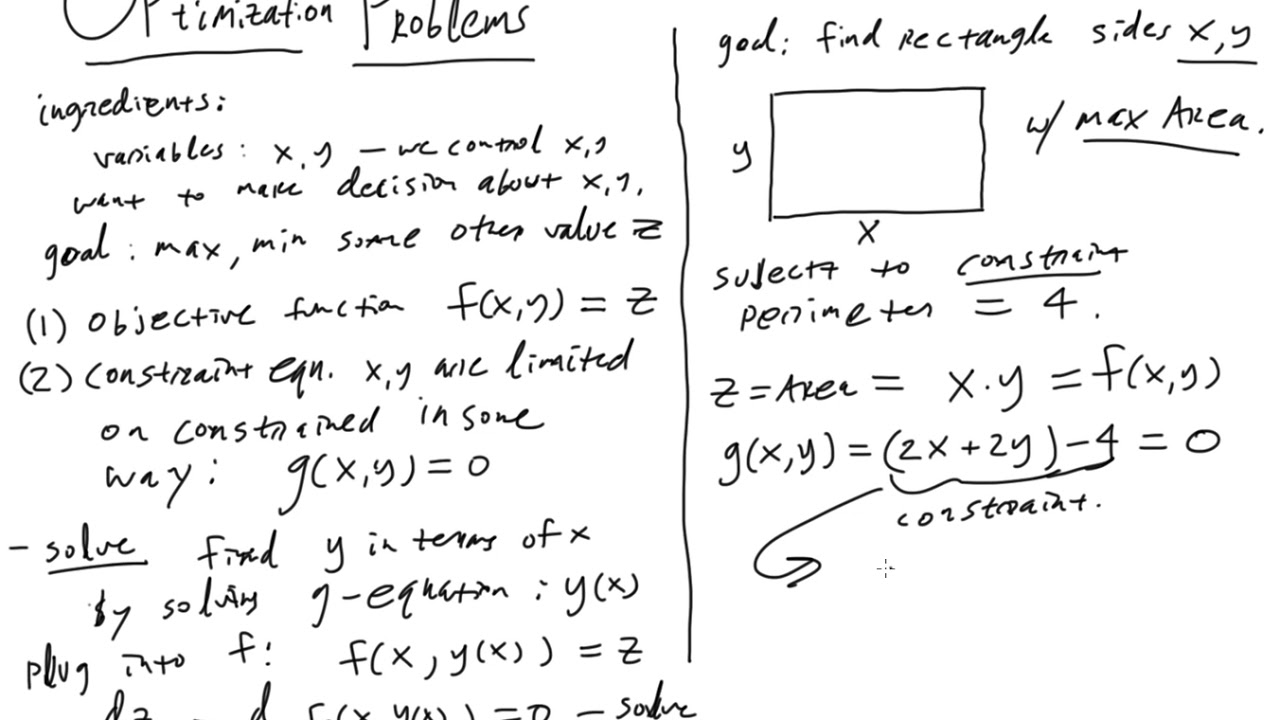 Optimization Problems
ingredients:
variables: x, y — we control x, y
want to make decision about x, y,
goal: max, min some other value z
(1) Objective function f(x,y) = z
(2) Constraint eqn. x, y are limited
or constrained in some
way: g(x,y) = 0
- solve find y in terms of x
by solving g-equation: y(x)
plug into f: f(x, y(x)) = z
dz = d f(x, y(x)) = 0 — solve
goal: find rectangle sides x, y
w/ max Area.
y
x
subject to constraint
perimeter = 4.
z = Area = x·y = f(x,y)
g(x,y) = (2x + 2y) - 4 = 0
constraint.